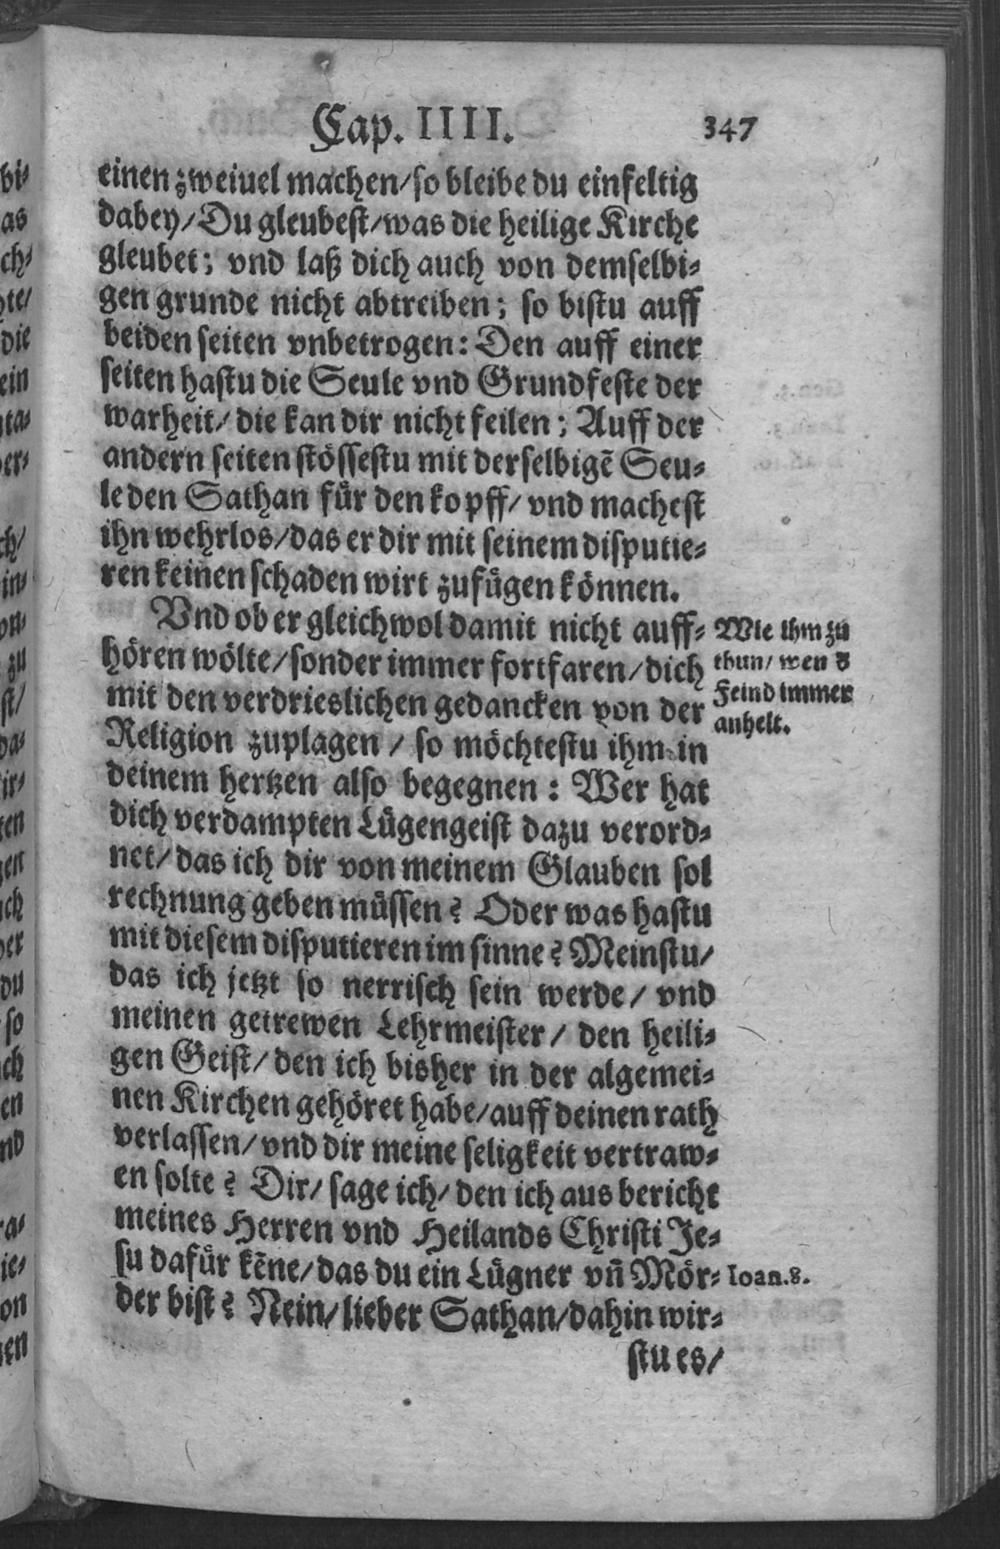 Cap. IIII. 347
einen zweiuel machen/so bleibe du einfeltig
dabey/Du gleubest/was die heilige Kirche
gleubet; vnd laß dich auch von demselbi-
gen grunde nicht abtreiben; so bistu auff
beiden seiten vnbetrogen: Den auff einer
seiten hastu die Seule vnd Grundfeste der
warheit/ die kan dir nicht feilen; Auff der
andern seiten stössestu mit derselbigē Seu-
le den Sathan für den kopff/ vnd machest
ihn wehrlos/das er dir mit seinem disputie-
ren keinen schaden wirt zufügen können.
Vnd ob er gleichwol damit nicht auff-
hören wölte/sonder immer fortfaren/dich
mit den verdrieslichen gedancken von der
Religion zuplagen / so möchtestu ihm in
deinem hertzen also begegnen: Wer hat
dich verdampten Lügengeist dazu verord-
net/das ich dir von meinem Glauben sol
rechnung geben müssen? Oder was hastu
mit diesem disputieren im sinne? Meinstu/
das ich jetzt so nerrisch sein werde/ vnd
meinen getrewen Lehrmeister/ den heili-
gen Geist/den ich bisher in der algemei-
nen Kirchen gehöret habe/auff deinen rath
verlassen/vnd dir meine seligkeit vertraw-
en solte? Dir/ sage ich/ den ich aus bericht
meines Herren vnd Heilands Christi Je-
su dafür kēne/das du ein Lügner vn̄ Mör-
der bist? Nein/lieber Sathan/dahin wir-
stu es/
Wie ihm zu
thun/ wen d
Feind immer
anhelt.
Ioan.8.